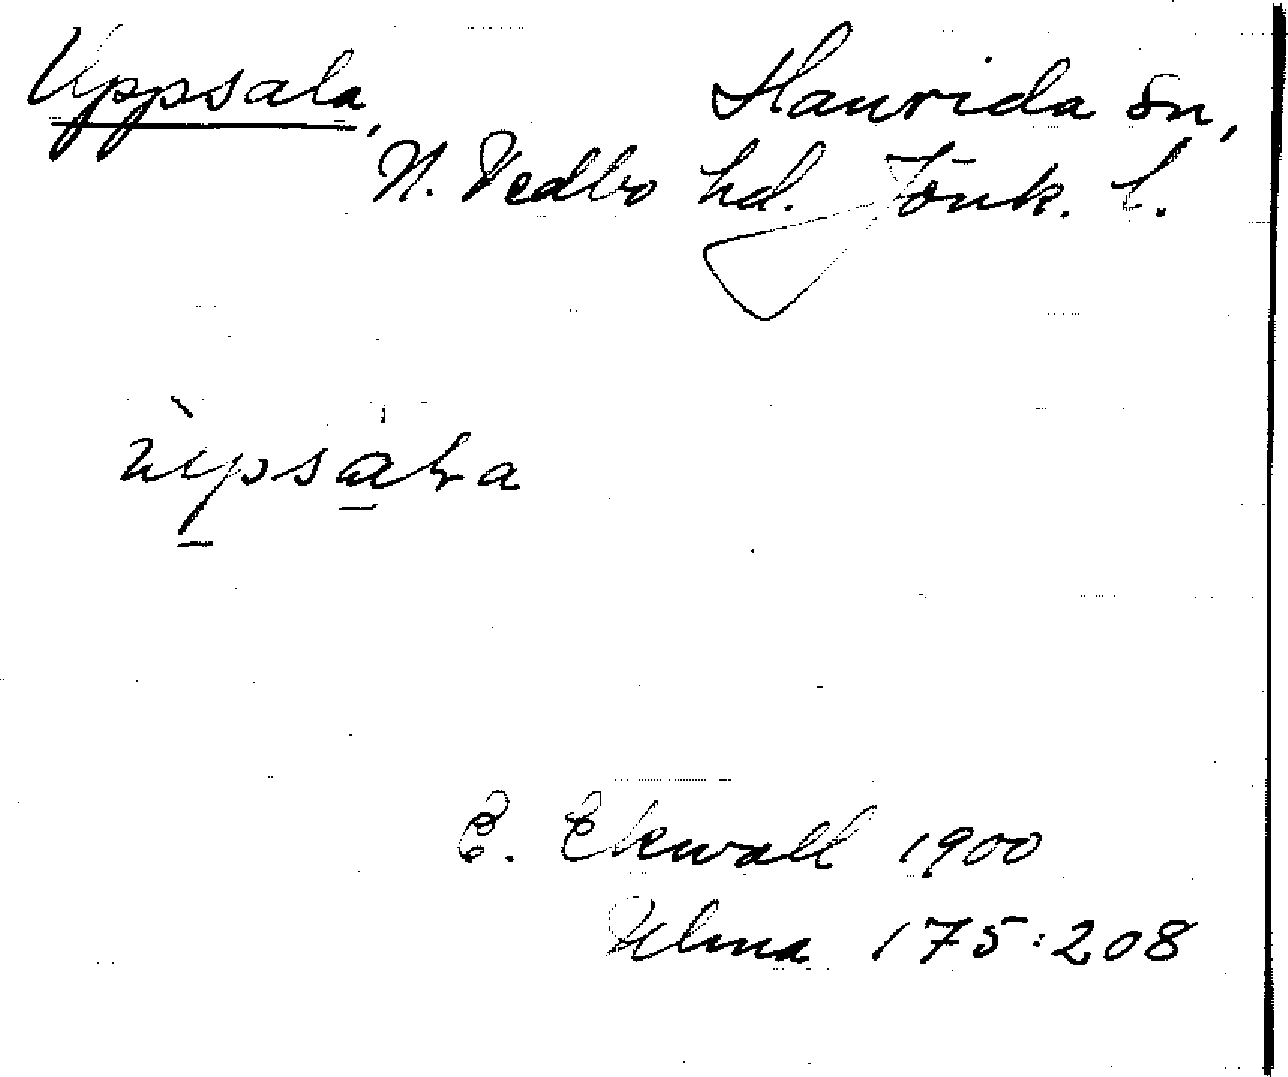 Uppsala, Haurida sn,
N. Vedbo hd. Jönk. l.
ùpsala
E. Ekwall 1900
Ulma 175:208